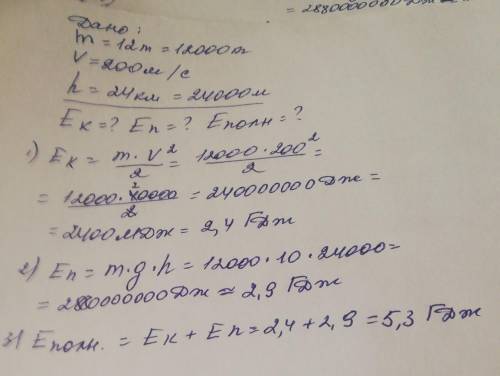 = 2880000000 Дж
Дано:
m = 12т = 12000т
V = 200м/с
h = 24км = 24000м
Eк = ? Eп = ? Eполн = ?
1) Eк = m · V² / 2 = 12000 · 200² / 2 =
= 12000 · 40000 / 2 = 240000000 Дж =
= 2400 МДж = 2,4 ГДж
2) Eп = m · g · h = 12000 · 10 · 24000 =
= 2880000000 Дж ≈ 2,9 ГДж
3) Eполн. = Eк + Eп = 2,4 + 2,9 = 5,3 ГДж